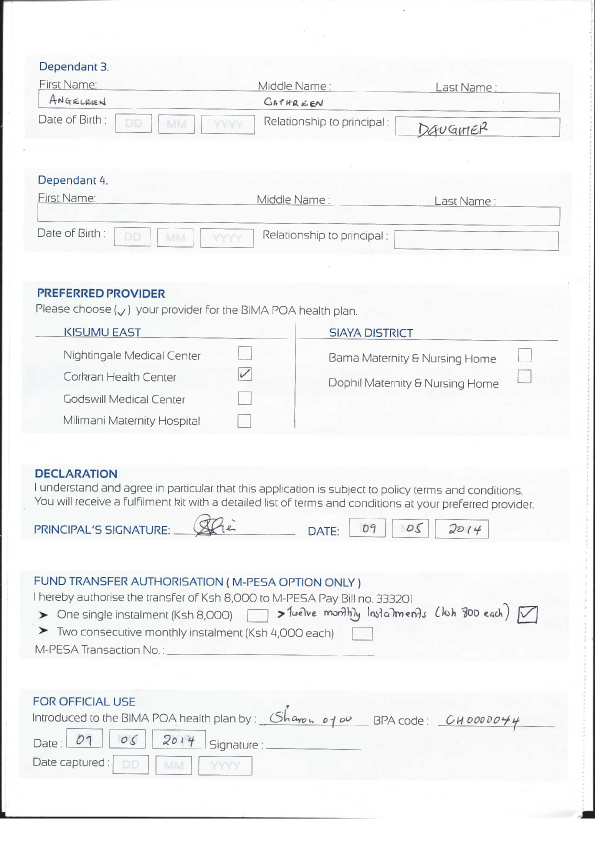 Dependant 3.
First Name: Middle Name : Last Name :
CATHREEN
Date of Birth : DD MM YYYY Relationship to principal : DAUGHTER
Dependant 4.
First Name: Middle Name : Last Name :
Date of Birth : DD MM YYYY Relationship to principal :
PREFERRED PROVIDER
Please choose (✓) your provider for the BIMA POA health plan.
KISUMU EAST SIAYA DISTRICT
Nightingale Medical Center Bama Maternity & Nursing Home
Corkran Health Center ✓ Dophil Maternity & Nursing Home
Godswill Medical Center
Milimani Maternity Hospital
DECLARATION
I understand and agree in particular that this application is subject to policy terms and conditions.
You will receive a fulfilment kit with a detailed list of terms and conditions at your preferred provider.
PRINCIPAL'S SIGNATURE: DATE: 09 05 2014
FUND TRANSFER AUTHORISATION ( M-PESA OPTION ONLY )
I hereby authorise the transfer of Ksh 8,000 to M-PESA Pay Bill no. 333201
➤ One single instalment (Ksh 8,000) > Twelve monthly Instalments (Ksh 800 each) ✓
➤ Two consecutive monthly instalment (Ksh 4,000 each)
M-PESA Transaction No. :
FOR OFFICIAL USE
Introduced to the BIMA POA health plan by : Sharon BPA code : CH0000044
Date : 09 05 2014 Signature :
Date captured : DD MM YYYY